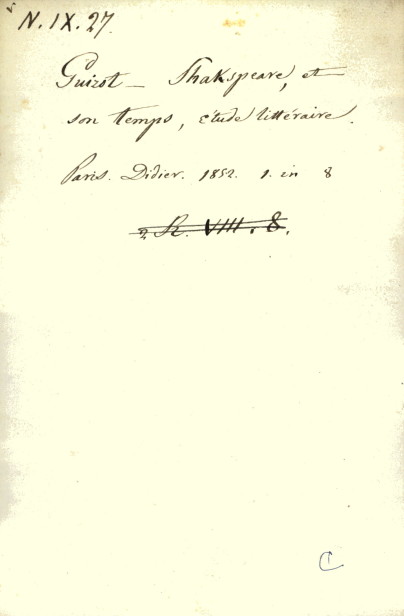 N. IX. 27.
Guizot – Shakspeare, et
son temps, étude littéraire.
Paris. Didier. 1852. 1. in 8
VIII. 8.
C